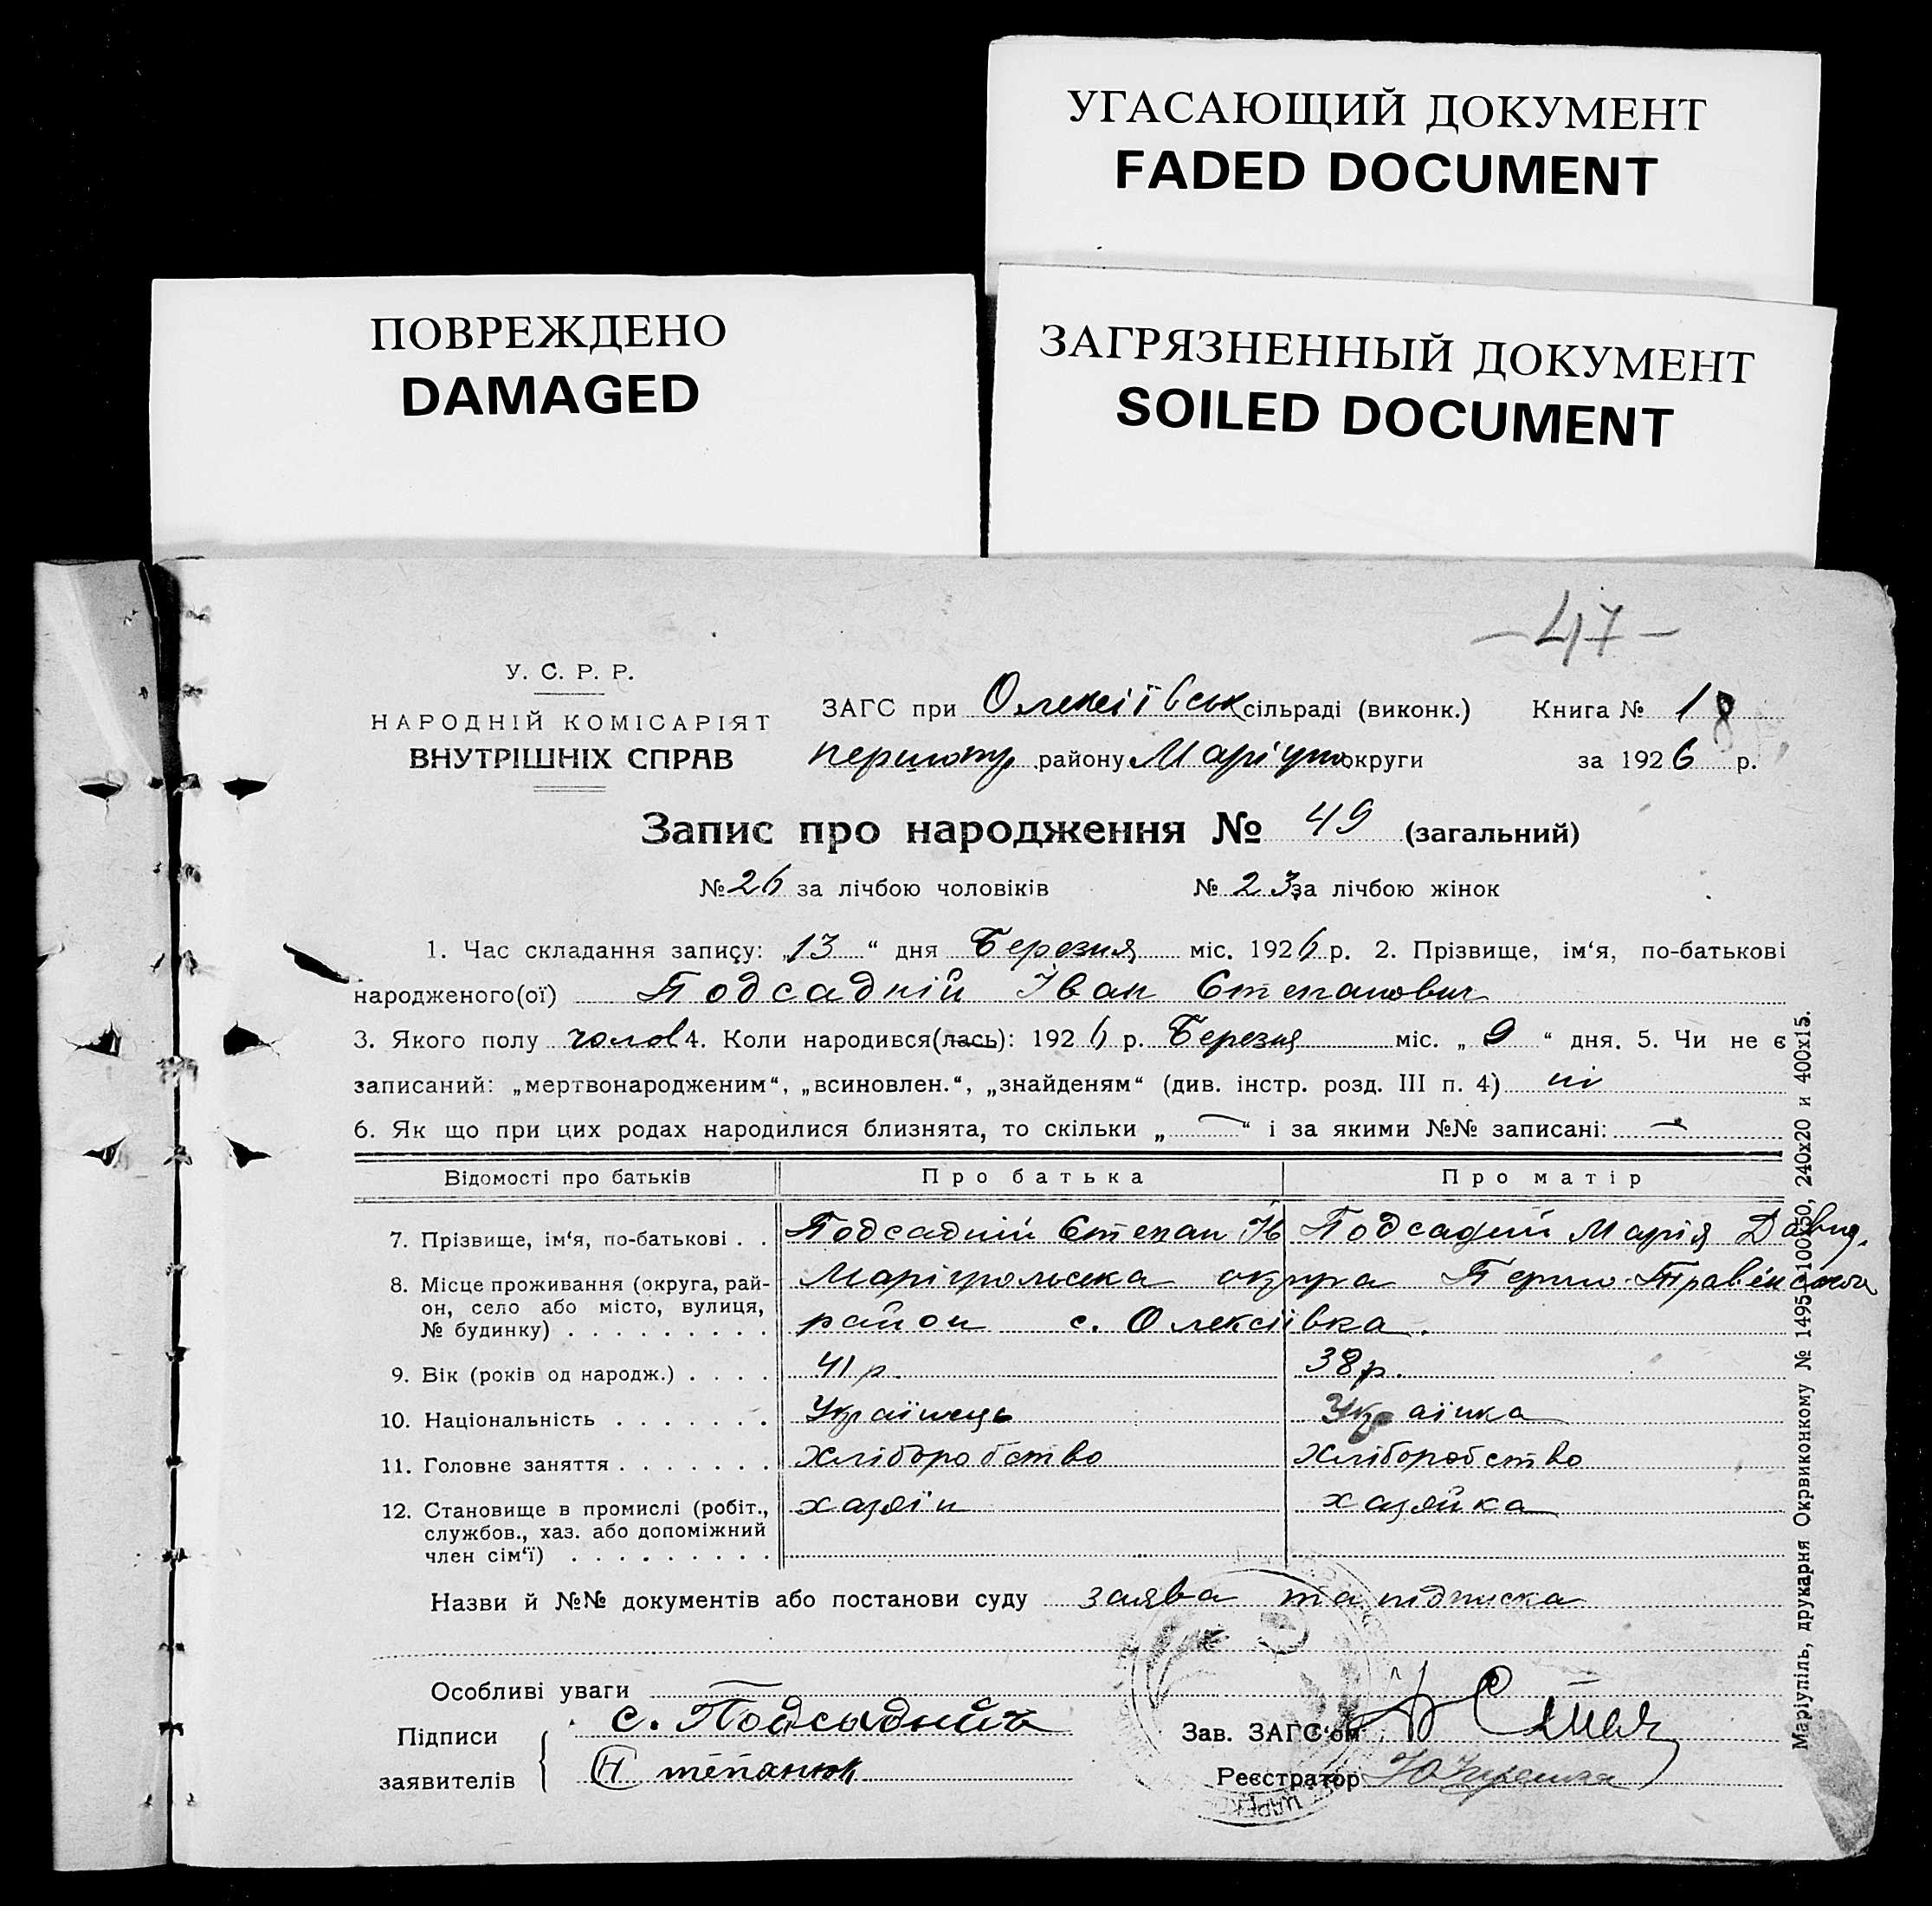 УГАСАЮЩИЙ ДОКУМЕНТ
FADED DOCUMENT
ПОВРЕЖДЕНО
DAMAGED
ЗАГРЯЗНЕННЫЙ ДОКУМЕНТ
SOILED DOCUMENT
— 47 —
У. С. Р. Р.
НАРОДНІЙ КОМІСАРІЯТ
ВНУТРІШНІХ СПРАВ
ЗАГС при Олексіївськ сільраді (виконк.) Книга № 18
першому району Маріуп округи за 1926 р.
Запис про народження № 49 (загальний)
№ 26 за лічбою чоловіків № 23 за лічбою жінок
1. Час складання запису: „13“ дня Березня міс. 1926 р. 2. Прізвище, ім‘я, по-батькові
народженого(ої) Подсадній Іван Степанович
3. Якого полу чолов 4. Коли народився(лась): 1926 р. Березня міс. „9“ дня. 5. Чи не є
записаний: „мертвонародженим“, „всиновлен.“, „знайденям“ (див. інстр. розд. III п. 4) ні
6. Як що при цих родах народилися близнята, то скільки „—“ і за якими №№ записані: —
Відомості про батьків Про батька Про матір
7. Прізвище, ім‘я, по-батькові . . Подсадній Степан Ів Подсадній Марія Давид.
8. Місце проживання (округа, рай-
он, село або місто, вулиця,
№ будинку) . . . . . . . . .
Маріупольська округа Першо-Травенського
район с. Олексіївка.
9. Вік (років од народж.) . . . . 41 р. 38 р.
10. Національність . . . . . . . Українець Українка
11. Головне заняття . . . . . . . Хліборобство Хліборобство
12. Становище в промислі (робіт., хазяїн хазяйка
службов., хаз. або допоміжний
член сім‘ї) . . . . . . . . .
Назви й №№ документів або постанови суду заява та підписка
Особливі уваги —
Підписи
заявителів
с. Подсадній
Н Степанюк
Зав. ЗАГС‘ом
Реєстратор
Маріупіль, друкарня Окрвиконкому № 1495—100х50, 240x20 и 400x15.